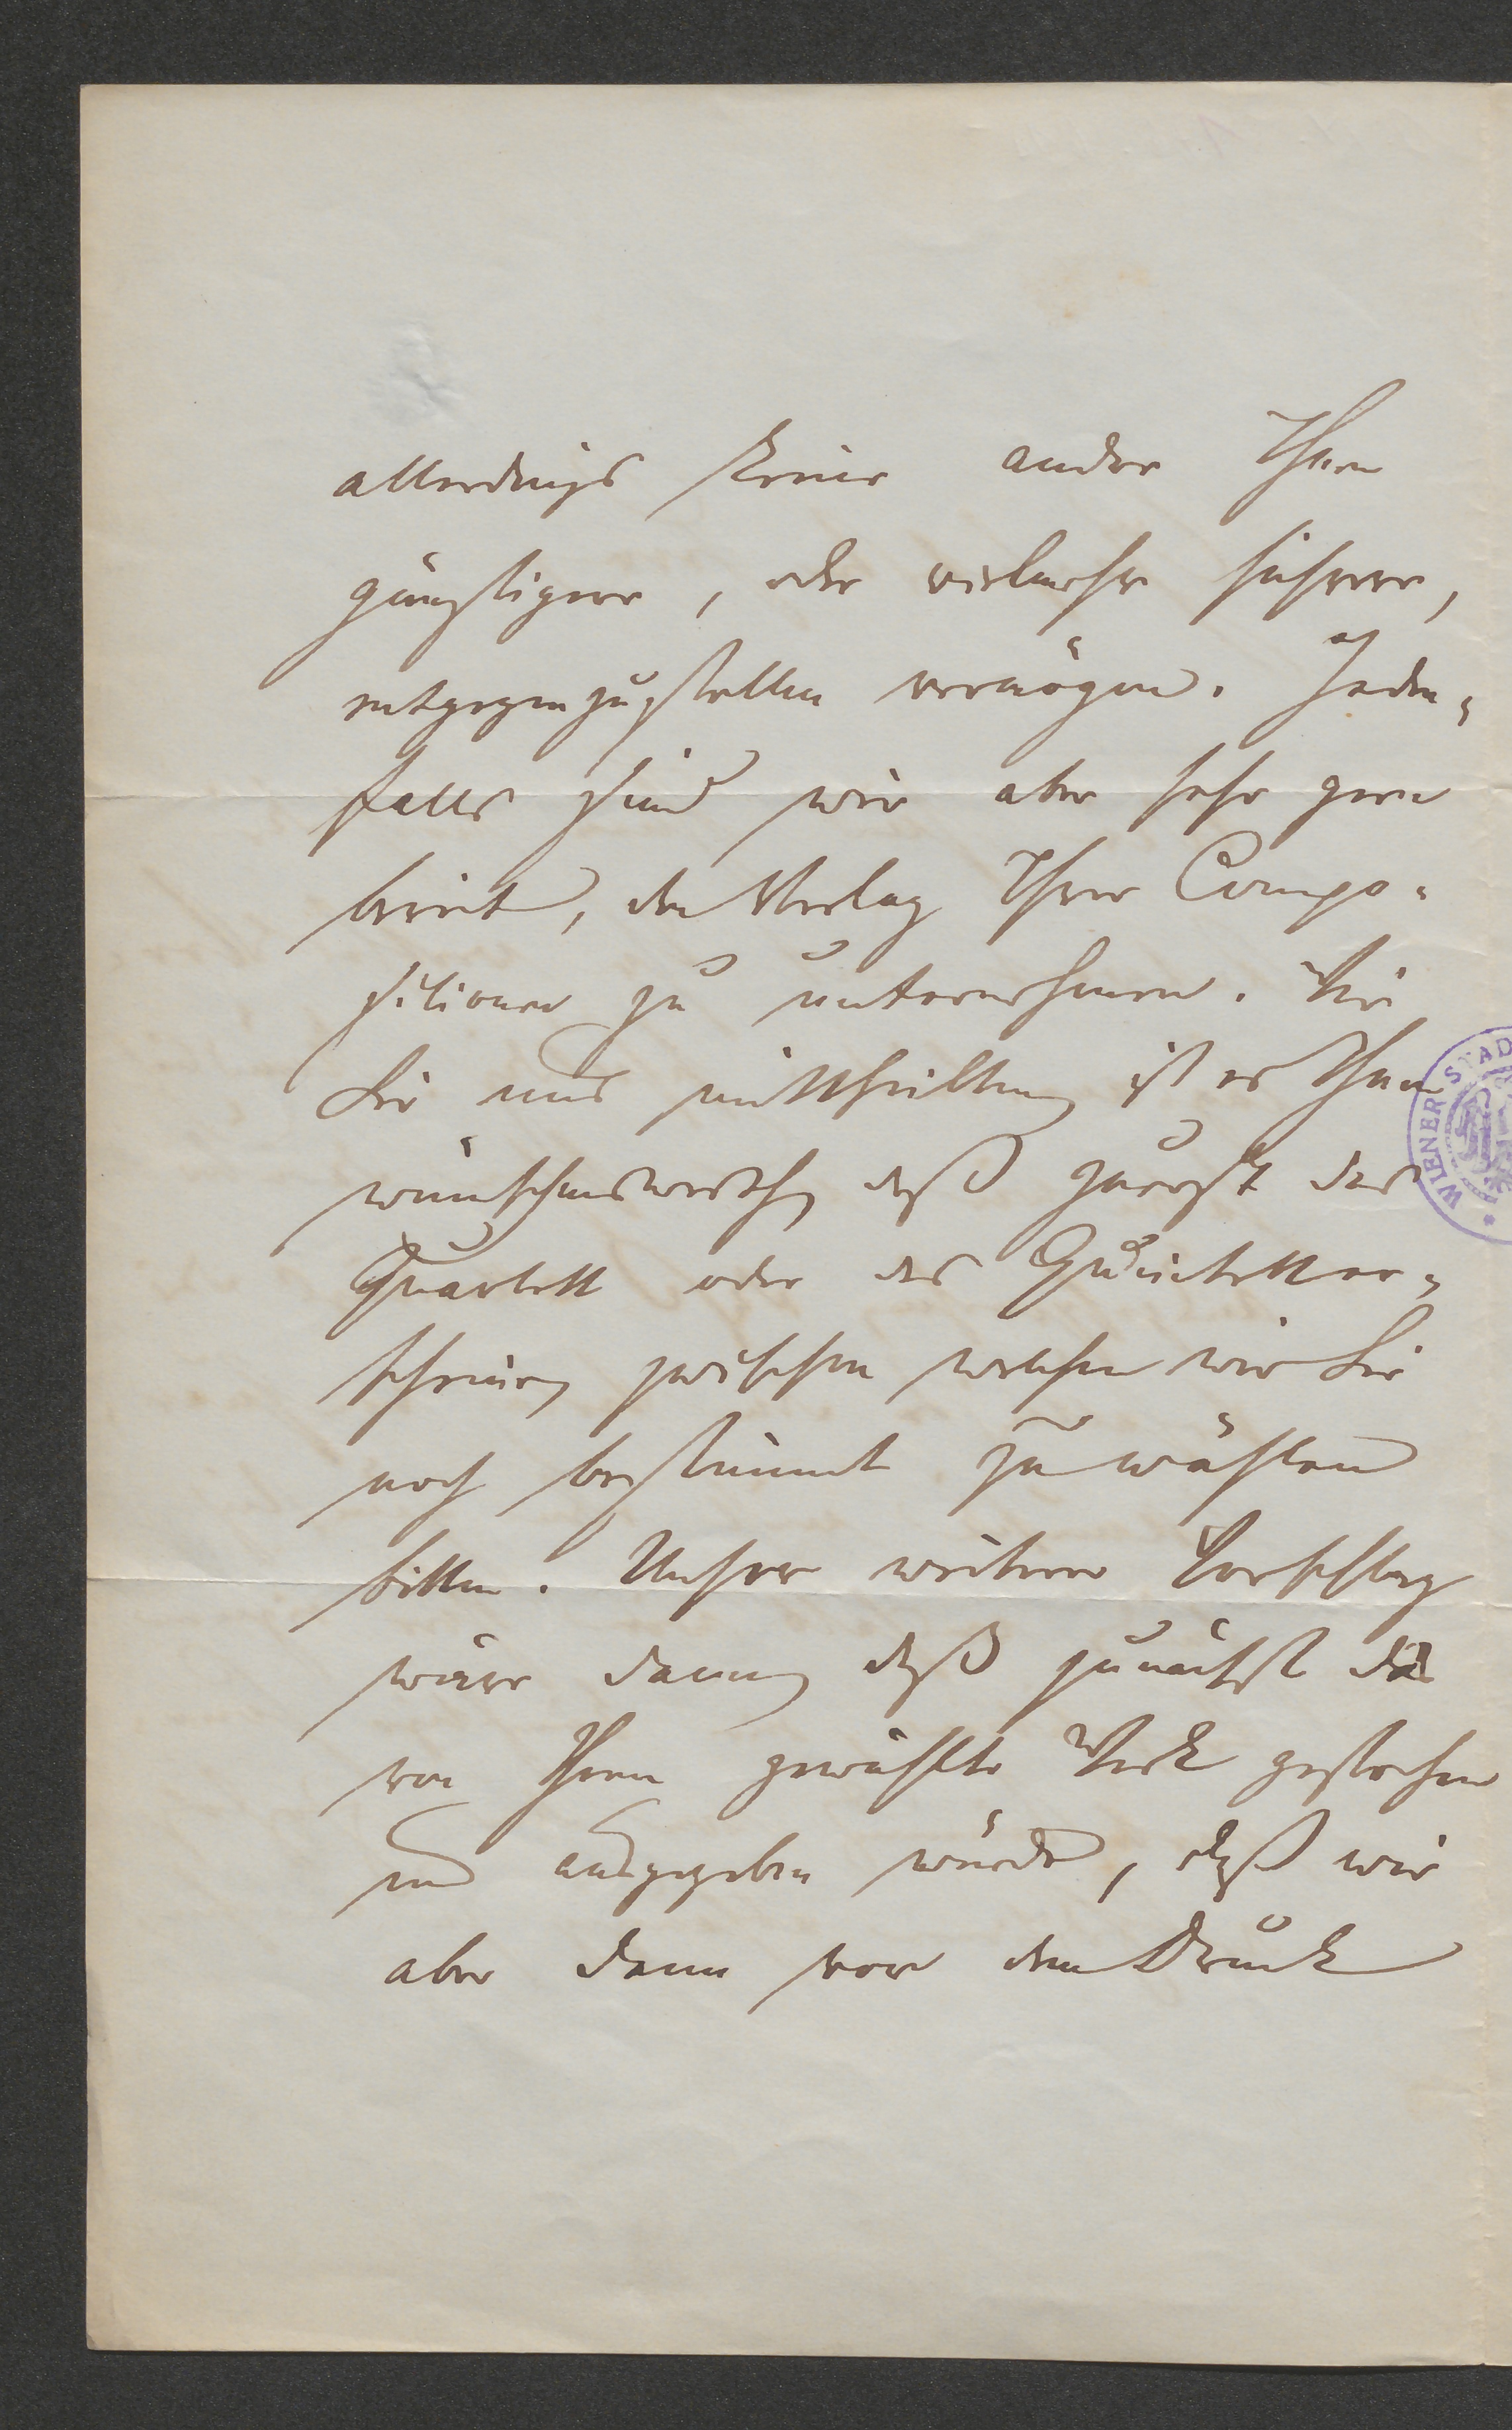 allerdings keine andre Ihnen
günstigere, oder vielmehr sichrere,
entgegenzustellen vermögen. Jeden-
falls sind wir aber sehr gern
bereit, den Verlag Ihrer Compo-
sitionen zu unternehmen. Wie
Sie uns mittheilten ist es Ihnen
wünschenswerth daß zuerst das
Quartett oder das Quintett er-
scheine, zwischen welchen wir Sie
noch bestimmt zu wählen
bitten. Unser weiterer Vorschlag
wäre dann, daß zunächst das
von Ihnen gewählte Werk gestochen
und ausgegeben würde, daß wir
aber dann vor dem Druck
WIENER STAD